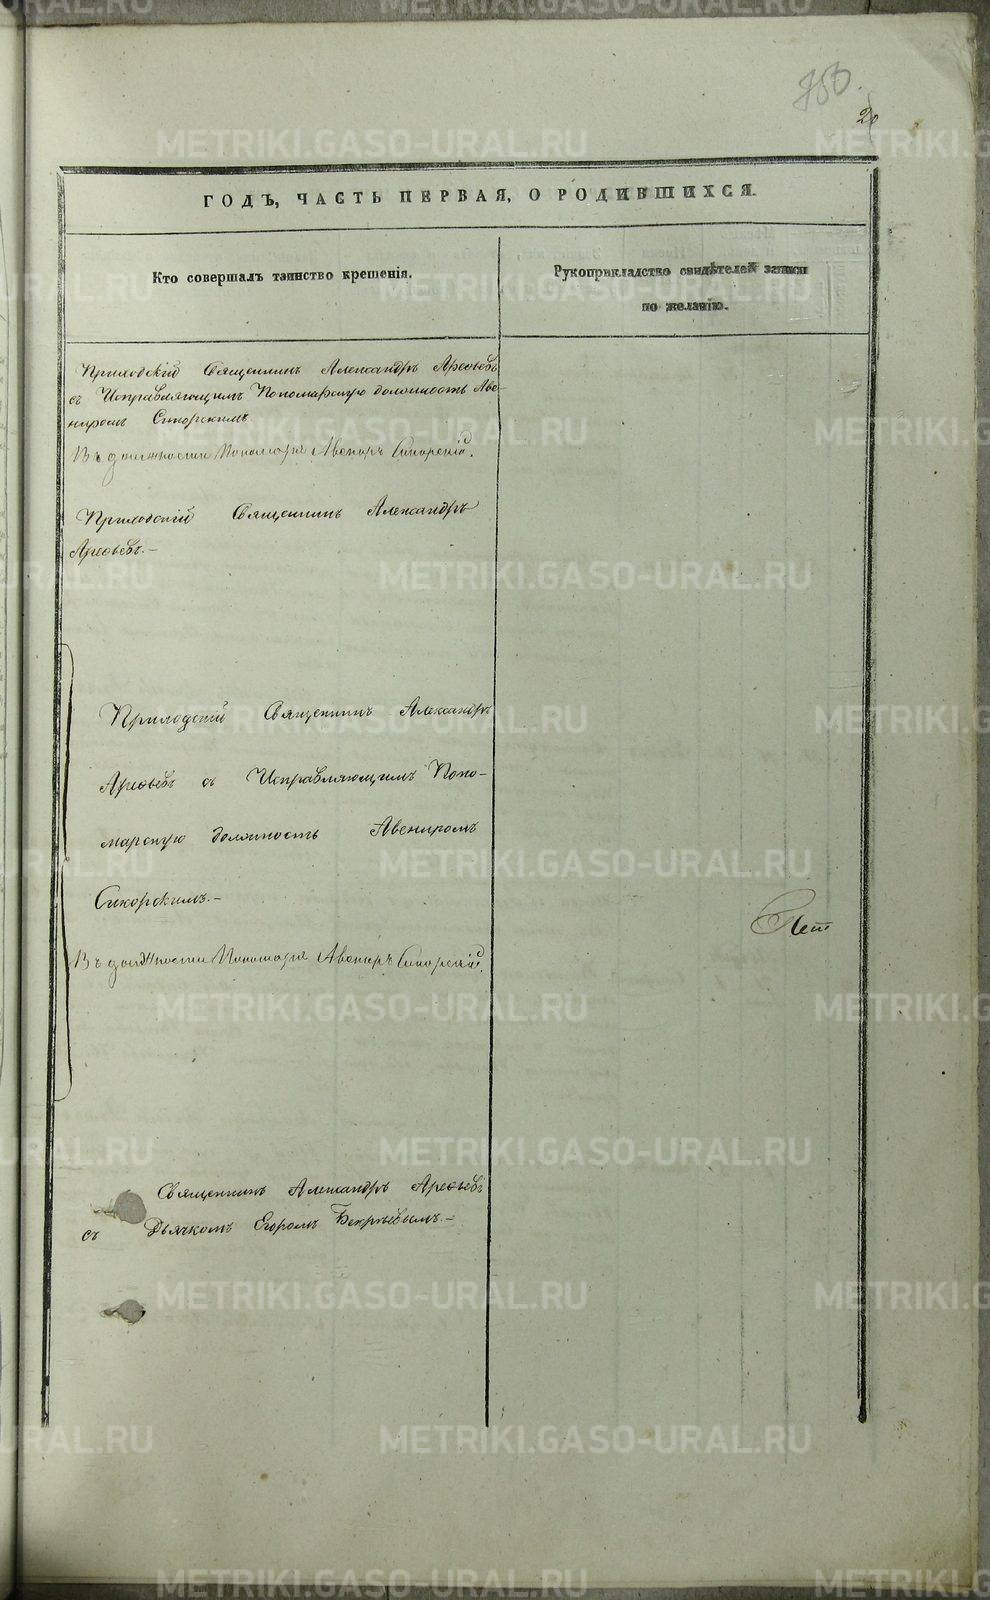 750.
20
ГОДЪ, ЧАСТЬ ПЕРВАЯ, О РОДИВШИХСЯ.
Кто совершалъ таинство крещенія.
Рукоприкладство свидѣтелей записи
по желанію.
Приходскій Священникъ Александръ Арефьевъ
съ Исправляющимъ Пономарскую должность Аве-
ниромъ Сикорскимъ
Въ должности Пономаря Авениръ Сикорскій.
Приходскій Священникъ Александръ
Арефьевъ.—
Приходскій Священникъ Александръ
Арефьевъ съ Исправляющимъ Поно-
марскую должность Авениромъ
Сикорскимъ.—
Въ должности Пономаря Авениръ Сикорскій.
Священникъ Александръ Арефьевъ
съ Дьячкомъ Егоромъ
METRIKI.GASO-URAL.RU